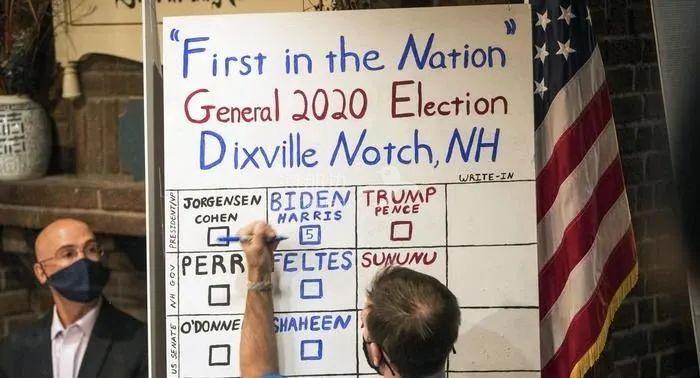 "First in the Nation"
General 2020 Election
Dixville Notch, NH
WRITE-IN
PRESIDENT/VP
JORGENSEN
COHEN
BIDEN
HARRIS
5
TRUMP
PENCE
NH GOV
PERR
FELTES
SUNUNU
US SENATE
O'DONNE
SHAHEEN